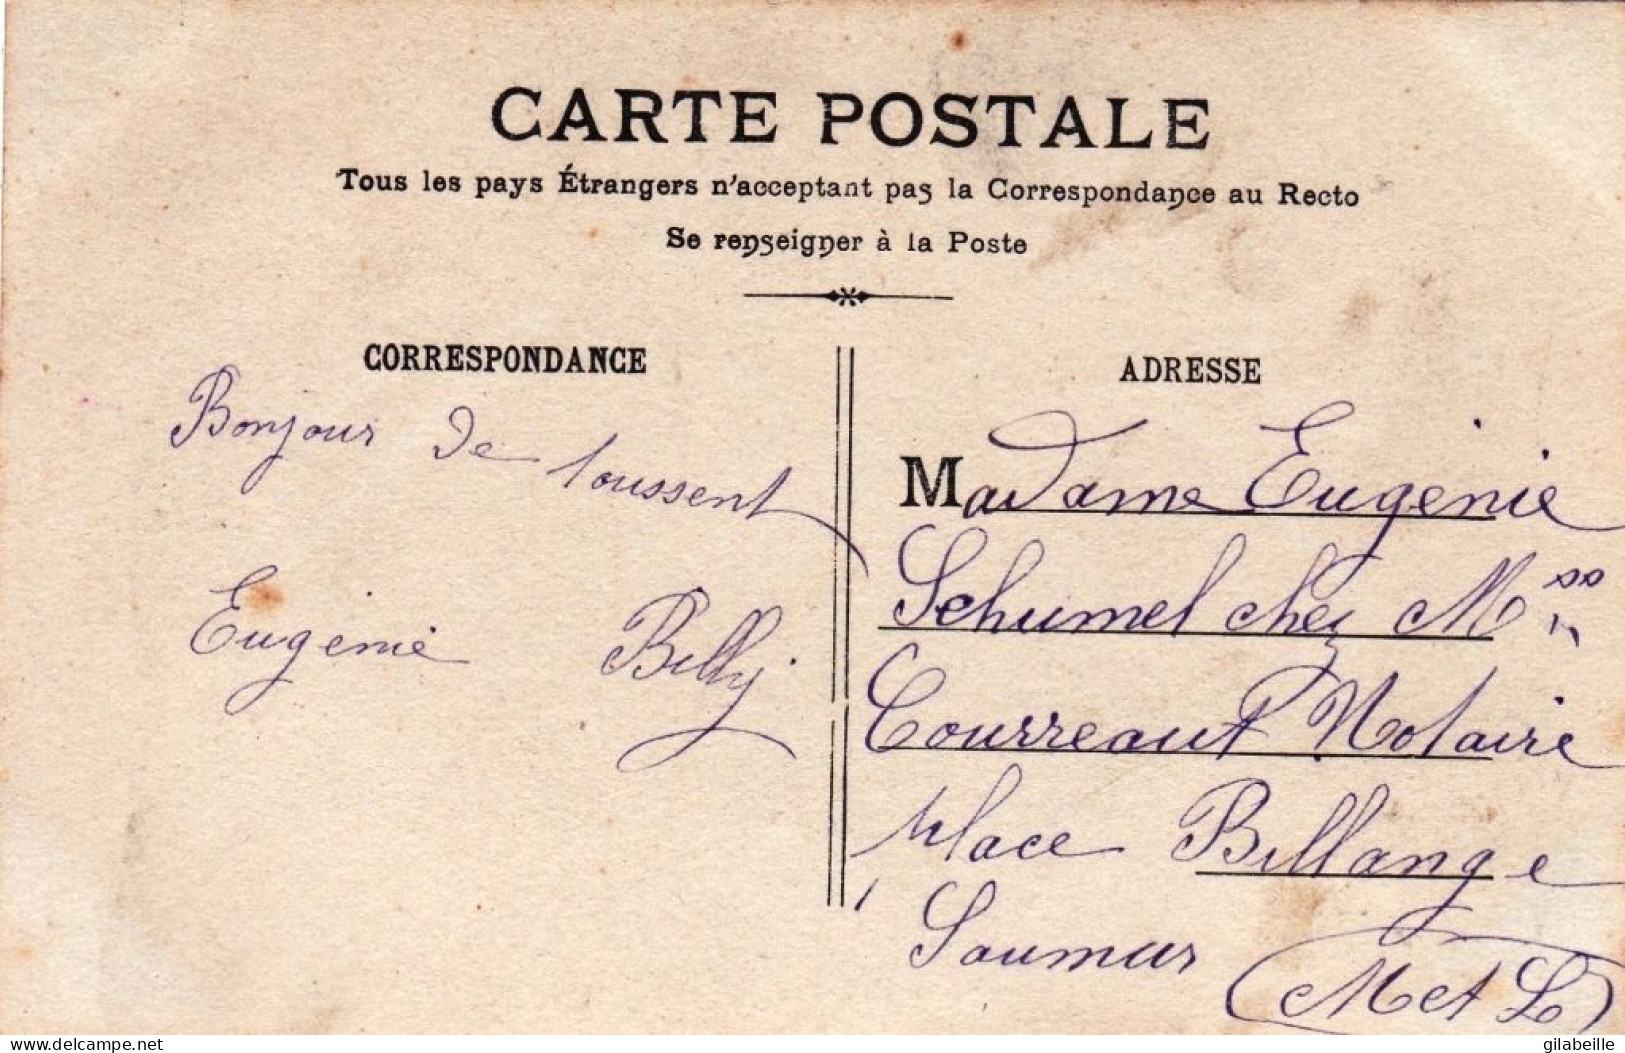 CARTE POSTALE
Tous les pays Étrangers n'acceptant pas la Correspondance au Recto
Se renseigner à la Poste
CORRESPONDANCE
Bonjour de Toussent
Eugénie Billy
ADRESSE
Madame Eugénie
Schumel chez M
Courreaut Notaire
place Billange
Saumur
M et L
delcampe.net
gilabeille